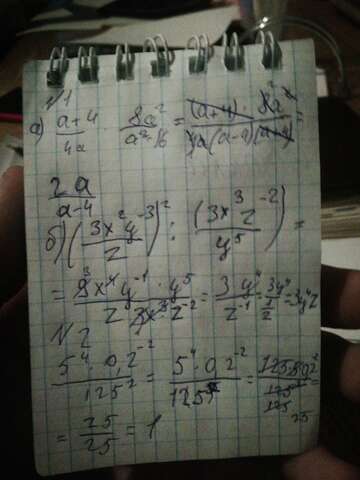 №1
а) (a+4)/(4a) · (8a²)/(a²-16) = ((a+4) · 8a²)/(4a(a-4)(a+4)) =
2a/(a-4)
б) ((3x²y⁻³)/z)² : ((3x³z⁻²)/y⁵) =
= (9x⁴y⁻¹ · y⁵)/(z² 3x³ z⁻²) = (3y⁴)/(z⁻¹) = (3y⁴)/(1/z) = 3y⁴z
N 2
(5⁴ · 0,2⁻²)/(125²) = (5⁴ · 0,2⁻²)/(125²) =
= 25/25 = 1